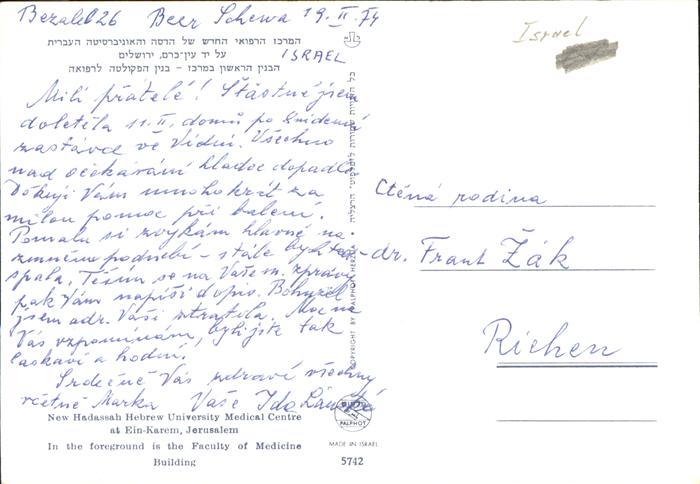 Bezalel 26 Beer Schewa 19. II. 74
המרכז הרפואי החדש של הדסה והאוניברסיטה העברית
על יד עין־כרם, ירושלים
ISRAEL
הבנין הראשון במרכז - בנין הפקולטה לרפואה
Milí přátelé! Šťastně jsem
doletěla 11. II. domů po
zastávce ve Vídni. Všechno
nad očekávání hladce dopadlo
Děkuji Vám mnohokrát za
milou pomoc při balení.
Pomalu si zvykám hlavně na
změněné podnebí - stále bych
spala. Těším se na Vaše zprávy
pak Vám napíši dopis. Bohužel
jsem adr. Vaši ztratila. Moc na
Vás vzpomínám, byli jste tak
laskaví a hodní!
Srdečně Vás zdraví všechny
včetně Marka Vaše Ida
New Hadassah Hebrew University Medical Centre
at Ein-Karem, Jerusalem
In the foreground is the Faculty of Medicine
Building
COPYRIGHT BY PALPHOT HERZLIA •
PALPHOT
MADE IN ISRAEL
5742
Israel
Ctěná rodina
dr. Frant Žák
Riehen